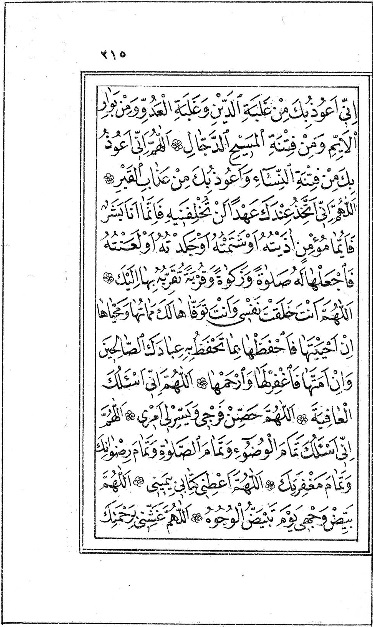 ٣١٥
اِنِّيْ اَعُوْذُ بِكَ مِنْ غَلَبَةِ الدَّيْنِ وَغَلَبَةِ الْعَدُوِّ وَمِنْ بَوَارِ
الْاَيِّمِ وَمِنْ فِتْنَةِ الْمَسِيْحِ الدَّجَّالِ ۞ اَللّٰهُمَّ اِنِّيْ اَعُوْذُ
بِكَ مِنْ فِتْنَةِ النِّسَاءِ وَاَعُوْذُ بِكَ مِنْ عَذَابِ الْقَبْرِ ۞
اَللّٰهُمَّ اِنِّيْ اَتَّخِذُ عِنْدَكَ عَهْدًا لَنْ تُخْلِفَنِيْهِ فَاِنَّمَا اَنَا بَشَرٌ
فَاَيُّمَا مُؤْمِنٍ اٰذَيْتُهُ اَوْ شَتَمْتُهُ اَوْ جَلَدْتُهُ اَوْ لَعَنْتُهُ
فَاجْعَلْهَا لَهُ صَلٰوةً وَزَكٰوةً وَقُرْبَةً تُقَرِّبُهُ بِهَا اِلَيْكَ ۞
اَللّٰهُمَّ اَنْتَ خَلَقْتَ نَفْسِيْ وَاَنْتَ تَوَفَّاهَا لَكَ مَمَاتُهَا وَمَحْيَاهَا
اِنْ اَحْيَيْتَهَا فَاحْفَظْهَا بِمَا تَحْفَظُ بِهِ عِبَادَكَ الصَّالِحِيْنَ
وَاِنْ اَمَتَّهَا فَاغْفِرْ لَهَا وَارْحَمْهَا ۞ اَللّٰهُمَّ اِنِّيْ اَسْئَلُكَ
الْعَافِيَةَ ۞ اَللّٰهُمَّ حَصِّنْ فَرْجِيْ وَيَسِّرْ لِيْ اَمْرِيْ ۞ اَللّٰهُمَّ
اِنِّيْ اَسْئَلُكَ تَمَامَ الْوُضُوْءِ وَتَمَامَ الصَّلٰوةِ وَتَمَامَ رِضْوَانِكَ
وَتَمَامَ مَغْفِرَتِكَ ۞ اَللّٰهُمَّ اَعْطِنِيْ كِتَابِيْ بِيَمِيْنِيْ ۞ اَللّٰهُمَّ
بَيِّضْ وَجْهِيْ يَوْمَ تَبْيَضُّ الْوُجُوْهُ ۞ اَللّٰهُمَّ غَشِّنِيْ بِرَحْمَتِكَ